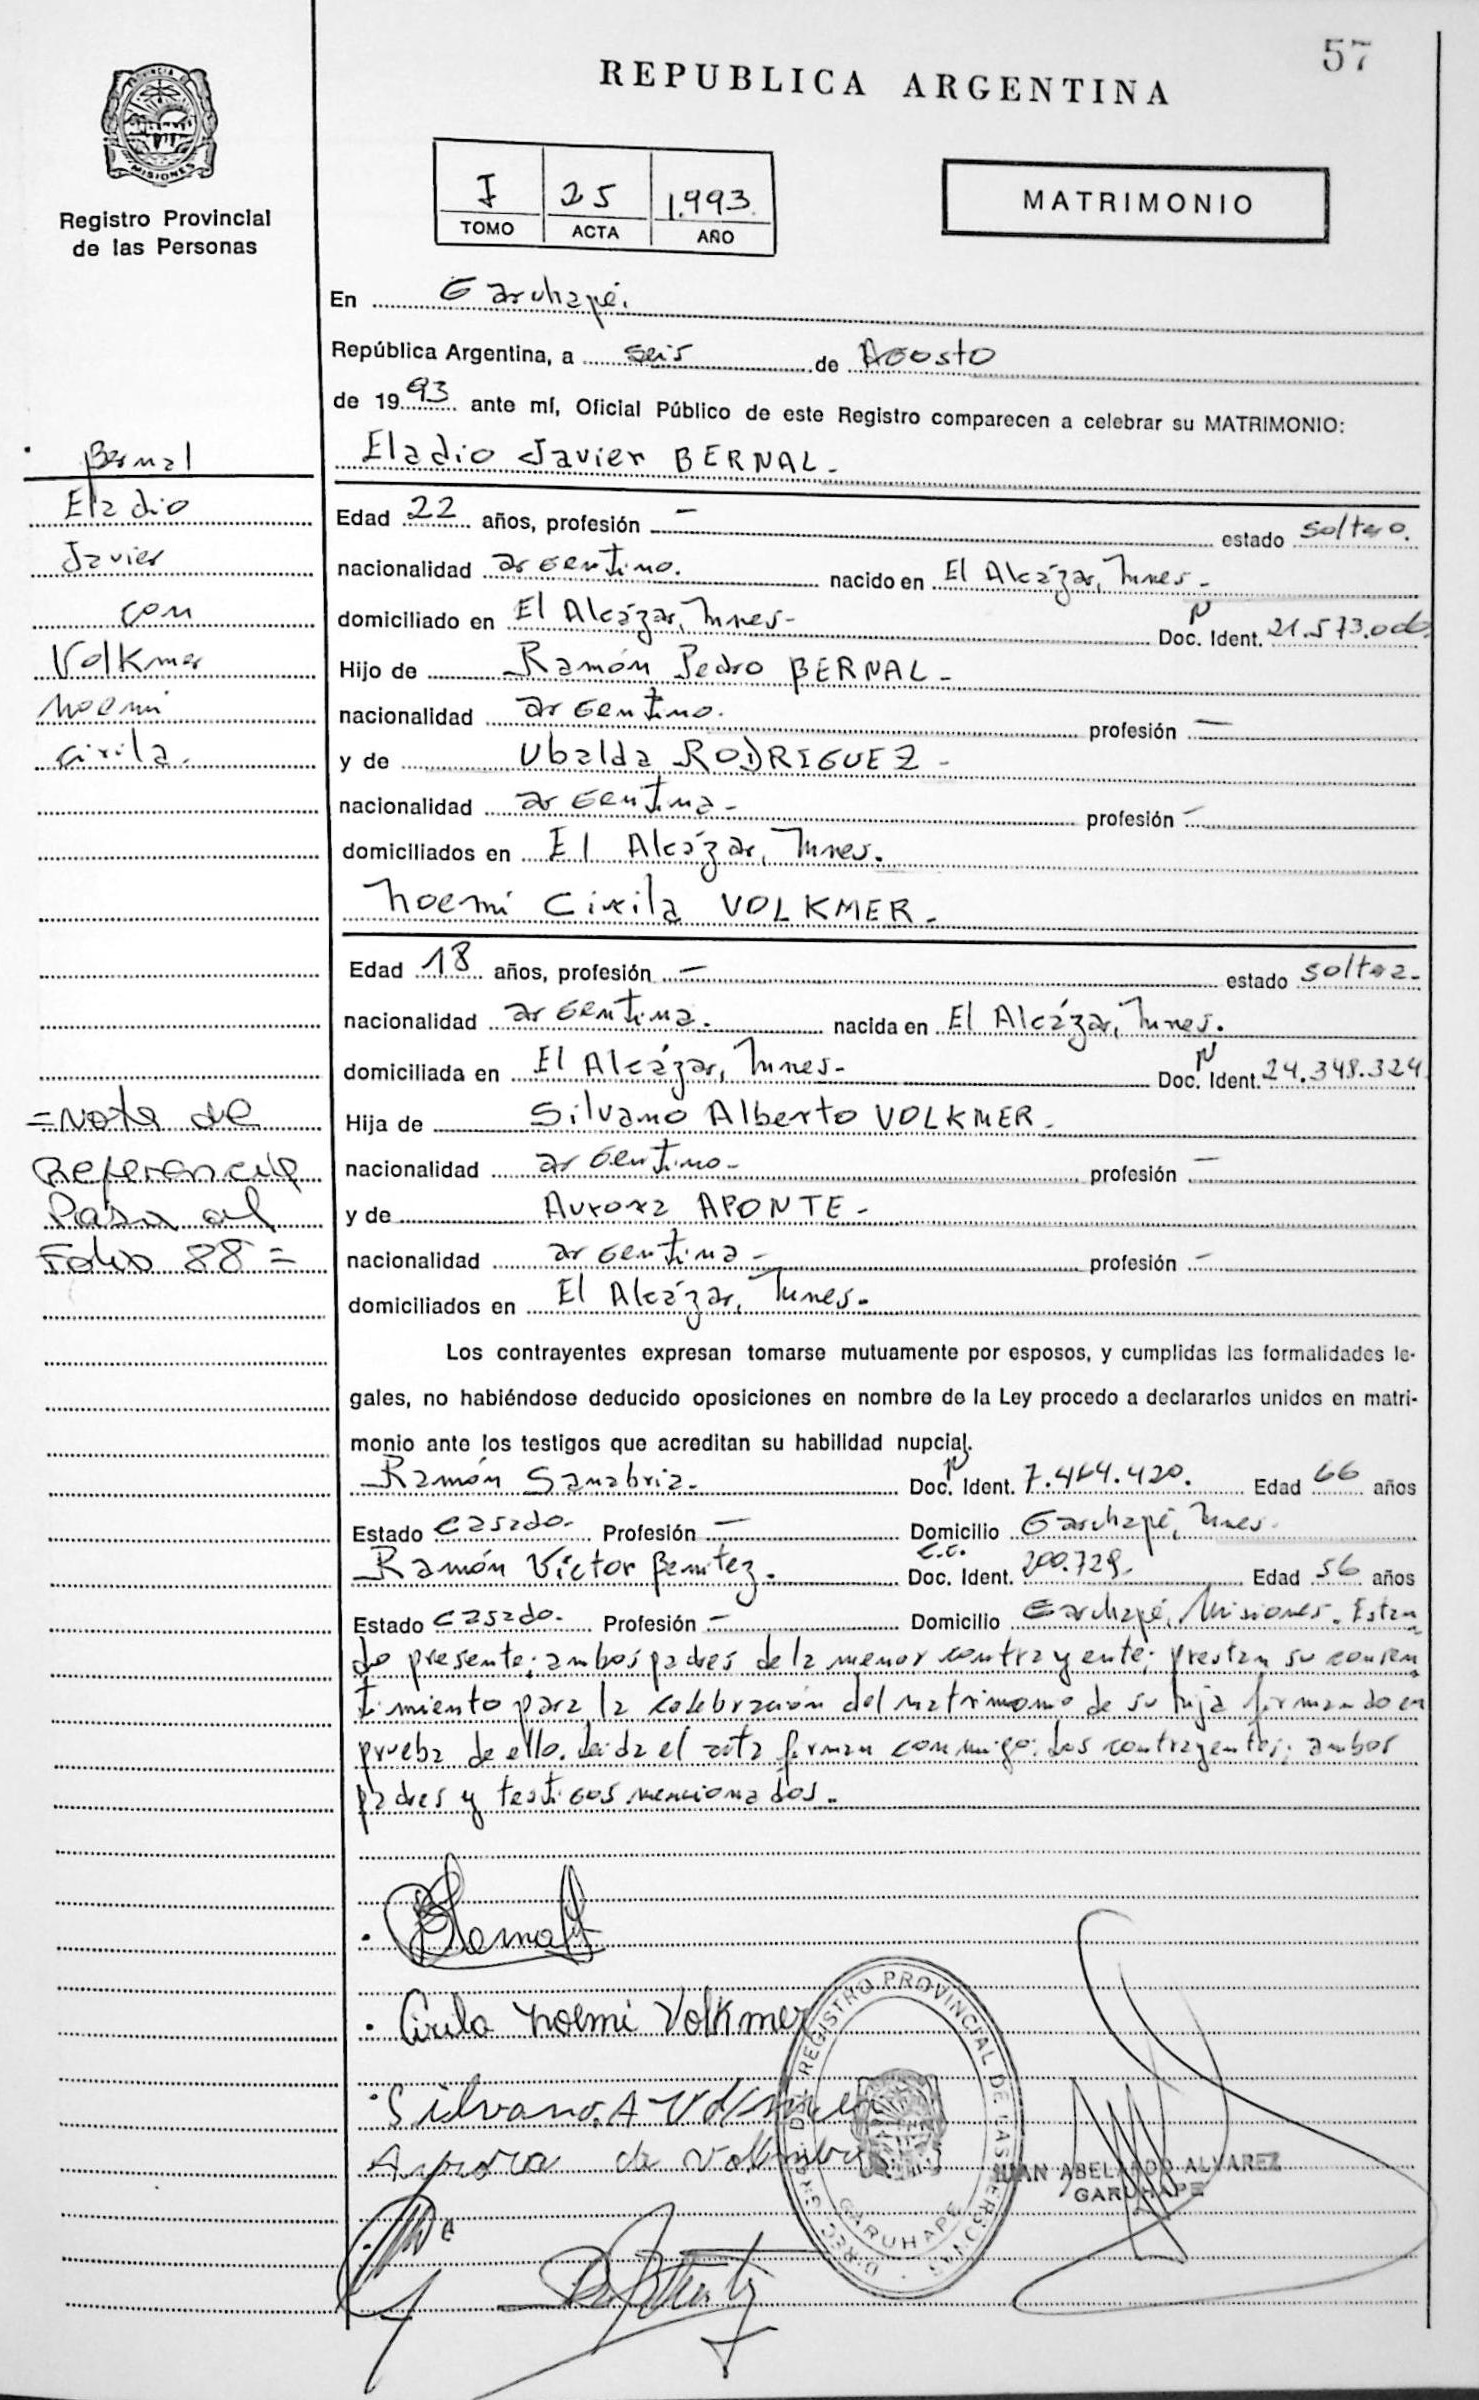 57
REPUBLICA ARGENTINA
PROVINCIA DE
MISIONES
Registro Provincial
de las Personas
I 25 1.993.
TOMO ACTA AÑO
MATRIMONIO
En Garuhapé.
República Argentina, a seis de Agosto
de 1993 ante mí, Oficial Público de este Registro comparecen a celebrar su MATRIMONIO:
Eladio Javier BERNAL-
Bernal
Eladio
Javier
con
Volkmer
Noemi
Cirila.
Edad 22 años, profesión — estado soltero.
nacionalidad argentino. nacido en El Alcázar, Mnes-
domiciliado en El Alcázar, Mnes- Doc. Ident. 21.573.
Hijo de Ramón Pedro BERNAL-
nacionalidad argentino. profesión —
y de Ubalda RODRIGUEZ-
nacionalidad argentina- profesión —
domiciliados en El Alcázar, Mnes.
Noemi Cirila VOLKMER-
Edad 18 años, profesión — estado soltera-
nacionalidad argentina. nacida en El Alcázar, Mnes.
domiciliada en El Alcázar, Mnes- Doc. Ident. 24.348.324
Hija de Silvano Alberto VOLKMER-
nacionalidad argentino- profesión —
y de Aurora APONTE-
nacionalidad argentina- profesión —
domiciliados en El Alcázar, Mnes.
=Nota de
Referencia
Pasa al
Folio 88=
Los contrayentes expresan tomarse mutuamente por esposos, y cumplidas las formalidades le-
gales, no habiéndose deducido oposiciones en nombre de la Ley procedo a declararlos unidos en matri-
monio ante los testigos que acreditan su habilidad nupcial.
Ramón Sanabria. Doc. Ident. 7.464.420. Edad 66 años
Estado casado. Profesión — Domicilio Garuhapé, Mnes.
Ramón Víctor Benitez. Doc. Ident. C.C. 200.729. Edad 56 años
Estado casado. Profesión — Domicilio Garuhapé, Misiones. Estan
do presente: ambos padres de la menor contrayente; prestan su consen
timiento para la celebración del matrimonio de su hija firmando en
prueba de ello. Leida el acta firman conmigo: los contrayentes; ambos
padres y testigos mencionados.
Bernal
Cirila Noemi Volkmer
Silvano. A Volkmer
Aurora de Volkmer
REGISTRO PROVINCIAL DE LAS PERSONAS
GARUHAPE
JUAN ABELARDO ALVAREZ
GARUHAPE